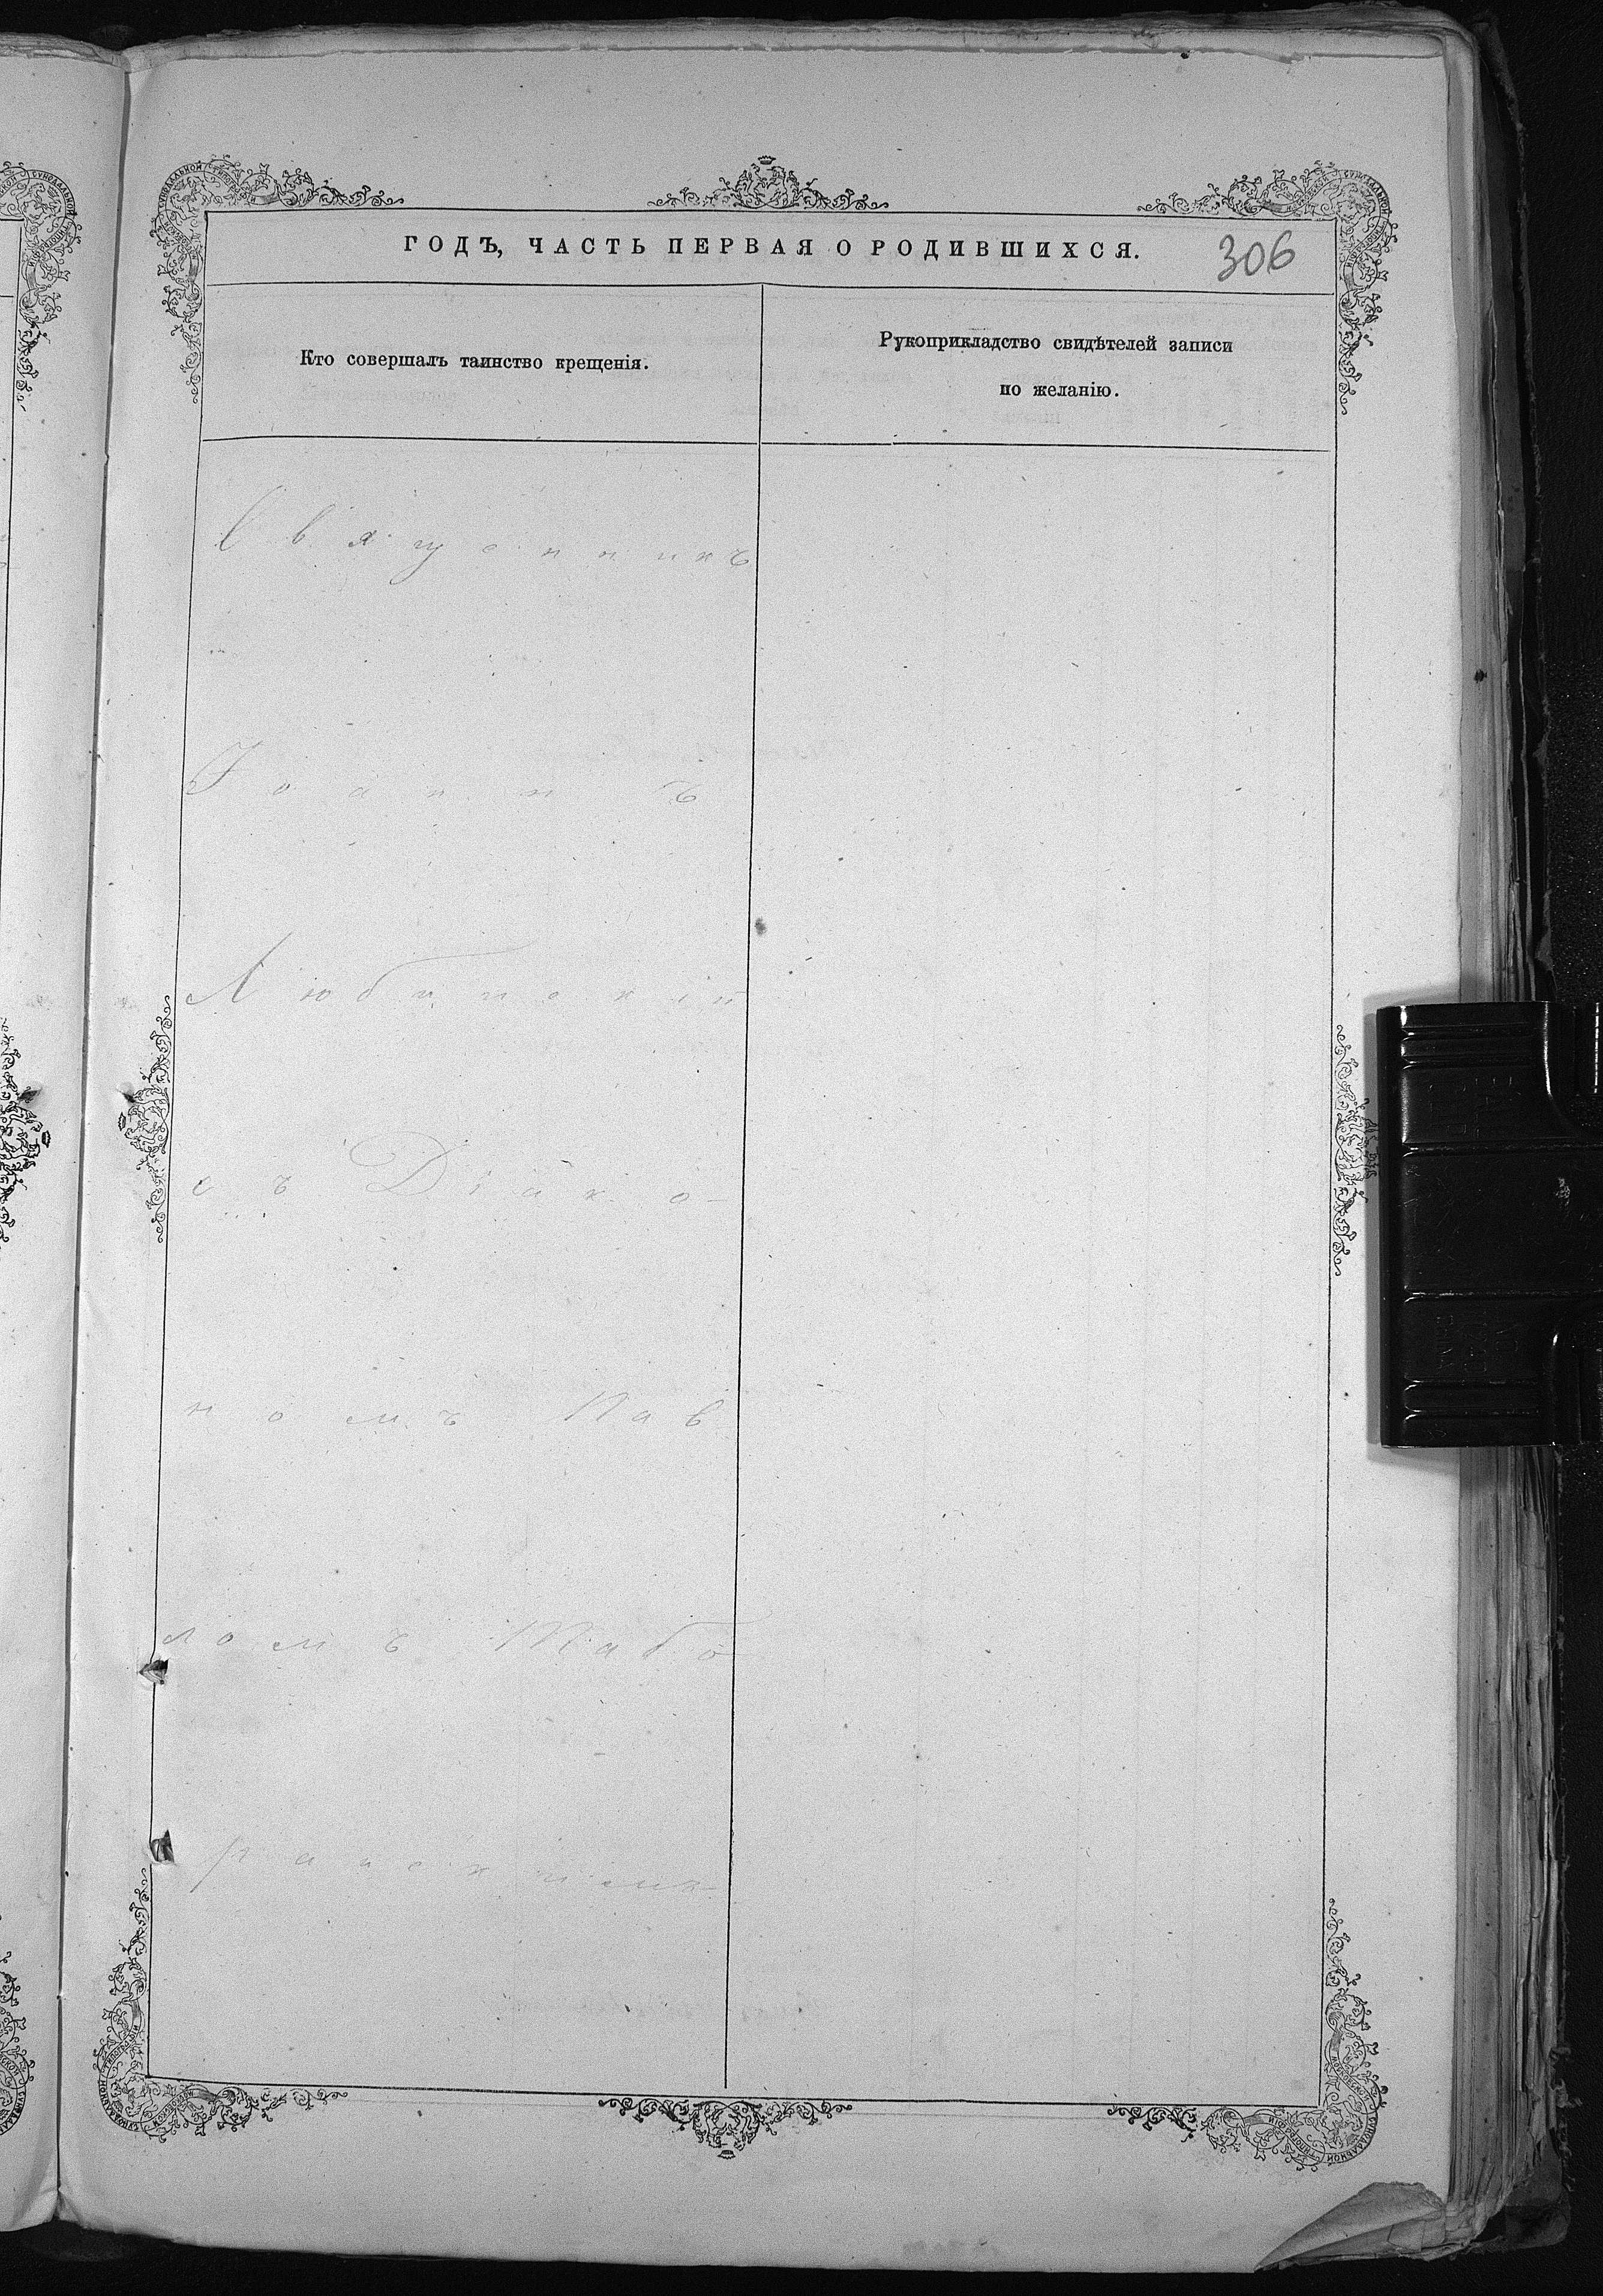 ГОДЪ, ЧАСТЬ ПЕРВАЯ О РОДИВШИХСЯ.
306
Кто совершалъ таинство крещенія.
Рукоприкладство свидѣтелей записи
по желанію.
Священникъ
Іоаннъ
Любинскій
съ Діако-
номъ Пав
ломъ Набо